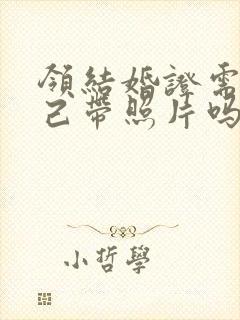 領結婚證需
己帶照片吗
小哲學